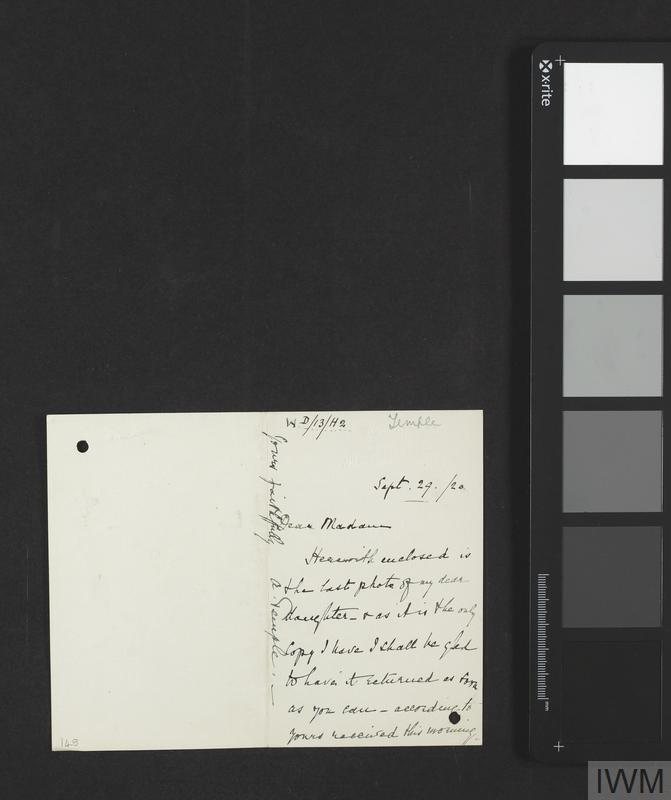 WD/13/H2
Temple
Sept. 29. /20
Dear Madam
Herewith enclosed is
the last photo of my dear
daughter - & as it is the only
Copy I have I shall be glad
to have it returned as soon
as you can - according to
yours received this morning.
Yours faithfully
A. Temple. -
148
x-rite
mm
IWM